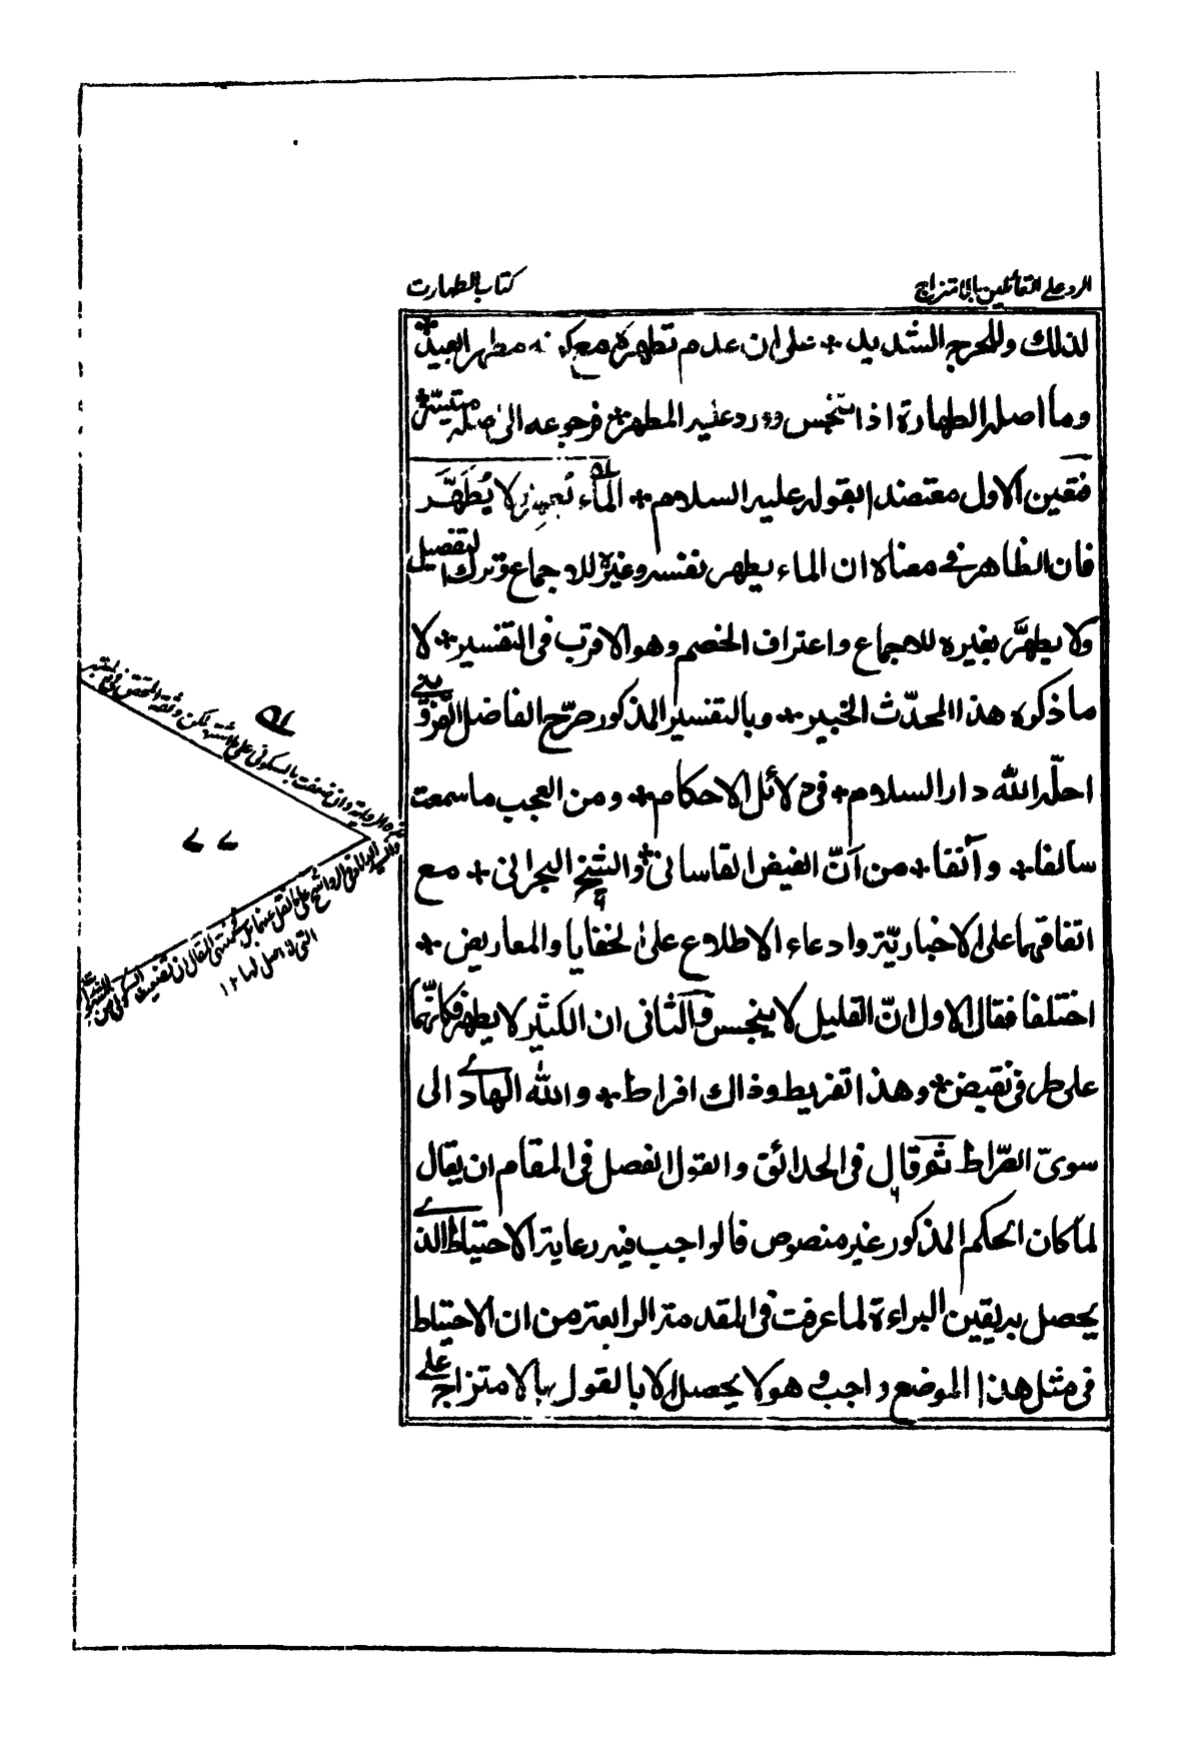 الرد على القائلين بالامتزاج
كتاب الطهارت
لذلك وللحرج الشديد + على ان عدم تطهره مع كونه مطهر العبيد +
وما اصله الطهارة اذا تنجس وورد عليه المطهر + فرجوعه الى اصله متيسّر +
فتعين الاول معتضدا بقوله عليه السلام + الماء يُطَهِّر ولا يُطَهَّر
فان الظاهر في معناه ان الماء يطهر نفسه وغيره للاجماع وترك التفصيل
ولا يطهَّر بغيره للاجماع واعتراف الخصم وهو الاقرب في التفسير + لا
ما ذكره هذا المحدّث الخبير + وبالتفسير المذكور صرّح الفاضل القزويني
احلّه الله دار السلام + في دلائل الاحكام + ومن العجب ما سمعت
سالفا + وآنفا + من أنّ الفيض القاساني + والشيخ البحراني + مع
اتفاقهما على الاخباريّة وادعاء الاطلاع على الخفايا والمعاريض +
اختلفا فقال الاول انّ القليل لا ينجس والثاني ان الكثير لا يطهر فكانّهما
على طرفي نقيض + وهذا تفريط وذاك افراط + والله الهادي الى
سويّ الصّراط ثم قال في الحدائق والقول الفصل في المقام ان يقال
لما كان الحكم المذكور غير منصوص فالواجب فيه رعاية الاحتياط الذي
يحصل به يقين البراءة لما عرفت في المقدمة الرابعة من ان الاحتياط
في مثل هذا الموضع واجب وهو لا يحصل الا بالقول بالامتزاج على
هذه الرواية وان ضعفت بالسكوني على ما اشتهر لكن وثقه المحقق في المعتبر
التي لا اصل لها ١٢